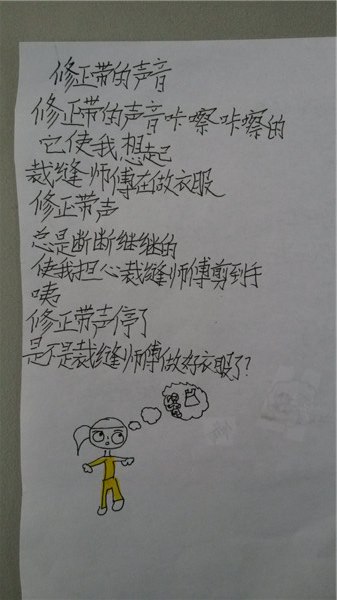 修正带的声音
修正带的声音咔嚓咔嚓的
它使我想起
裁缝师傅在做衣服
修正带声
总是断断继继的
使我担心裁缝师傅剪到手
咦
修正带声停了
是不是裁缝师傅做好衣服了?